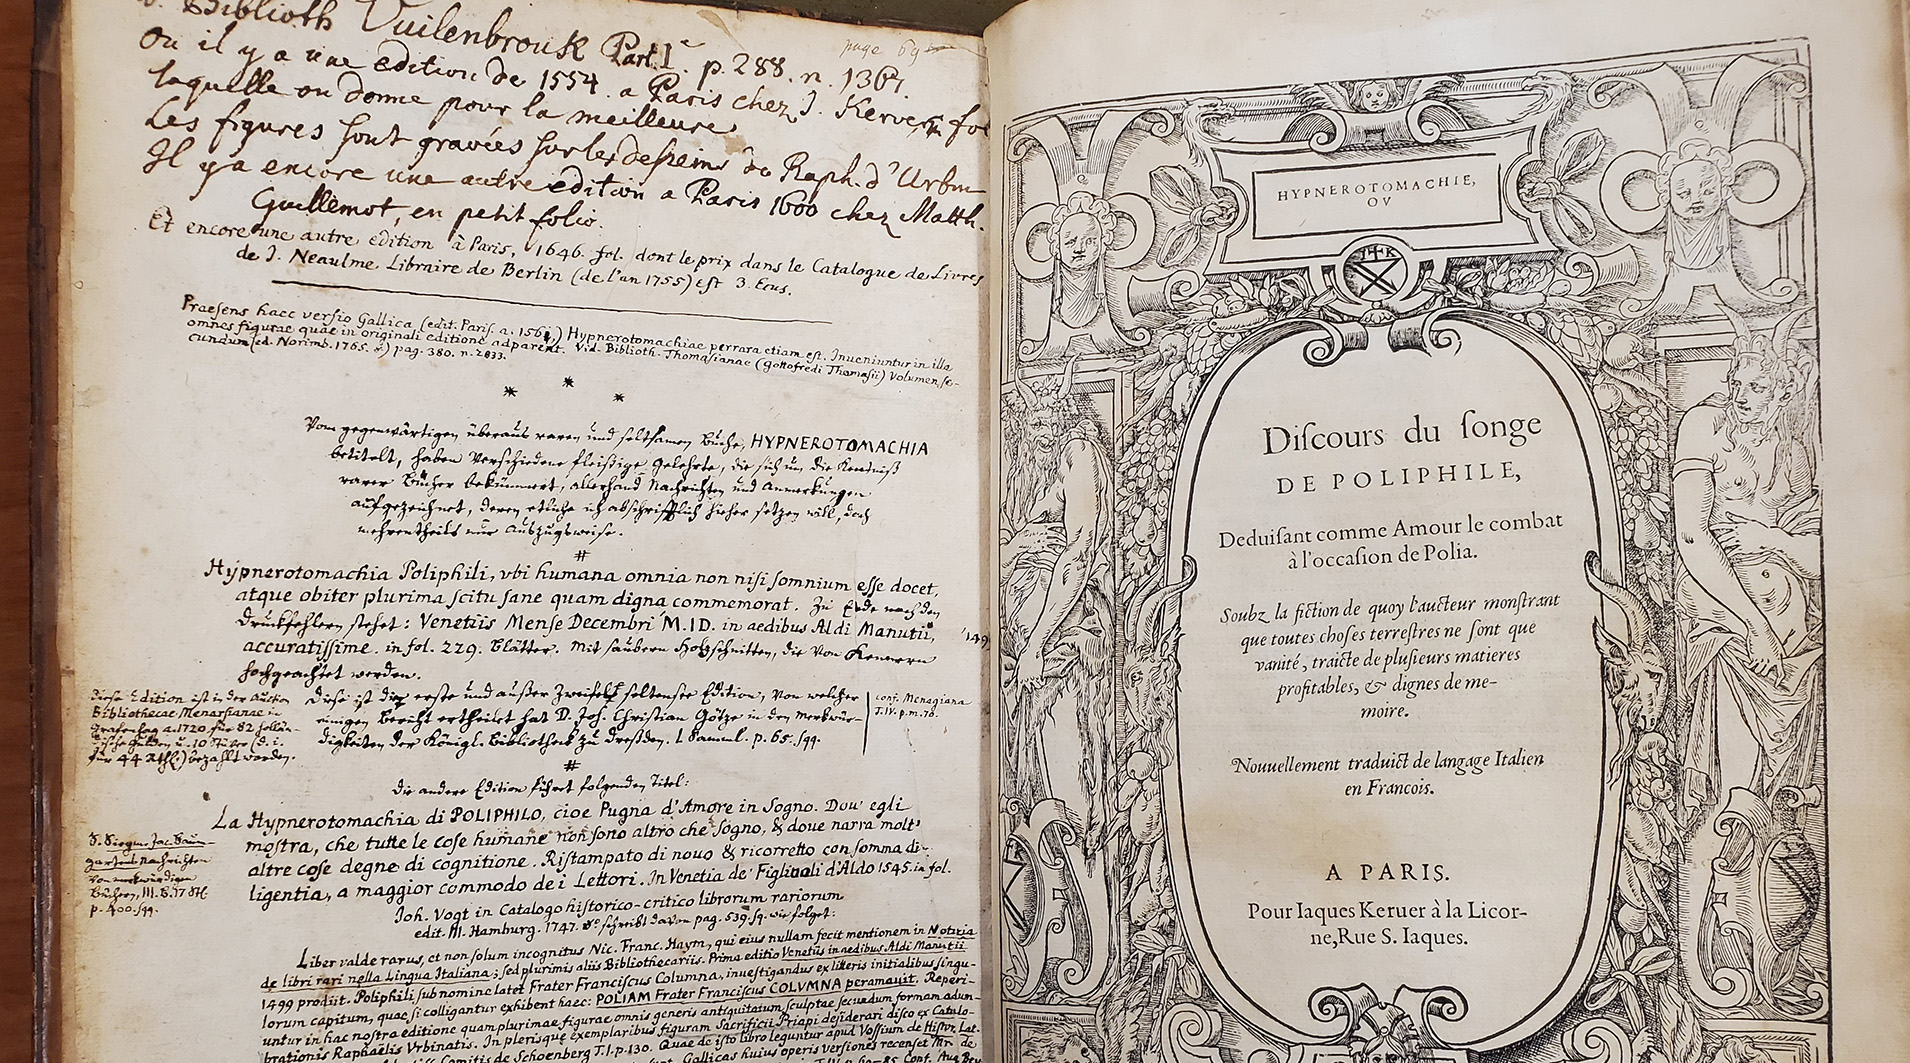 v. Biblioth Vuilenbrouk Part. I. p. 288. n. 1367.
page 69
Ou il y a une edition de 1554. a Paris chez J. Kerver, fol
laquelle on donne pour la meilleure
Les figures sont gravées sur les desseins de Raph. d'Urbin
Il y a encore une autre edition a Paris 1600 chez Matth.
Guillemot, en petit folio.
Et encore une autre edition à Paris, 1646. fol. dont le prix dans le Catalogue de Livres
de J. Neaulme Libraire de Berlin (de l'an 1755) est 3. Ecus.
Praesens haec versio Gallica, (edit. Paris. a. 1561.) Hypnerotomachiae perrara etiam est. Inveniuntur in illa
omnes figurae quae in originali editione adparent. Vid. Biblioth. Thomasianae (Gottofredi Thomasii) Volumen se-
cundum (ed. Norimb. 1765. 8.) pag. 380. n. 2833.
* * *
Vom gegenwärtigen überaus raren und seltsamen Buche, HYPNEROTOMACHIA
betitelt, haben verschiedene fleißige Gelehrte, die sich um die Kenntniß
rarer Bücher bekümmert, allerhand Nachrichten und Anmerkungen
aufgezeichnet, deren etliche ich abschrifftlich hieher setzen will, doch
mehrentheils nur Auszugsweise.
#
Hypnerotomachia Poliphili, vbi humana omnia non nisi somnium esse docet,
atque obiter plurima scitu sane quam digna commemorat. Zu Ende nach den
Druckfehlern stehet: Venetiis Mense Decembri M.ID. in aedibus Aldi Manutii, 1499
accuratissime. in fol. 229. Blätter. Mit saubern Holzschnitten, die von Kennern
hochgeachtet werden.
Diese Edition ist in der Auction
Bibliothecae Menarsianae in
Grafenhag a. 1720. für 82 hollän-
dische Gulden u. 10 Stüver (d. i.
für 44 Rthl.) bezahlt worden.
Diese ist die erste und außer Zweifel seltenste Edition, von welcher
einigen Bericht ertheilet hat D. Joh. Christian Götze in den Merkwür-
digkeiten der Königl. Bibliotheck zu Dreßden. I Samml. p. 65. sqq.
conf. Menagiana
T. IV. p. m. 70.
#
Die andere Edition führet folgenden Titel:
La Hypnerotomachia di POLIPHILO, cioe Pugna d'Amore in Sogno. Dou' egli
mostra, che tutte le cose humane non sono altro che sogno, & doue narra molt'
altre cose degne di cognitione. Ristampato di nouo & ricorretto con somma di-
ligentia, a maggior commodo de i Lettori. In Venetia de' Figliuoli d'Aldo 1545. in fol.
S. Siegm. Jac. Baum-
gartens Nachrichten
von merkwürdigen
Büchern, III. B. 17 St.
p. 400. sqq.
Joh. Vogt in Catalogo historico-critico librorum rariorum
edit. III. Hamburg. 1747. 8° schreibt davon pag. 539. sq. wie folget:
Liber valde rarus, et non solum incognitus Nic. Franc. Haym, qui eius nullam fecit mentionem in Notizia
de libri rari nella Lingua Italiana; sed plurimis aliis Bibliothecariis. Prima editio Venetiis in aedibus Aldi Manutii
1499 prodiit. Poliphili sub nomine latet Frater Franciscus Columna, investigandus ex litteris initialibus singu-
lorum capitum, quae si colligantur exhibent haec: POLIAM Frater Franciscus COLVMNA peramauit. Reperi-
untur in hac nostra editione quamplurimae figurae omnis generis antiquitatum, sculptae secundum formam adum-
brationis Raphaelis Vrbinatis. In plerisque exemplaribus figuram Sacrificii Priapi desiderari disco ex Catalo-
Comitis de Schoenberg T. I. p. 130. Quae de isto libro leguntur apud Vossium de Histor. Lat.
Gallicas huius operis versiones recenset Mr. de
HYPNEROTOMACHIE,
OV
I K
Diſcours du ſonge
DE POLIPHILE,
Deduiſant comme Amour le combat
à l'occaſion de Polia.
Soubz la fiction de quoy l'aucteur monſtrant
que toutes choſes terreſtres ne ſont que
vanité, traicte de pluſieurs matieres
profitables, & dignes de me-
moire.
Nouuellement traduict de langage Italien
en Francois.
A PARIS.
Pour Iaques Keruer à la Licor-
ne, Rue S. Iaques.